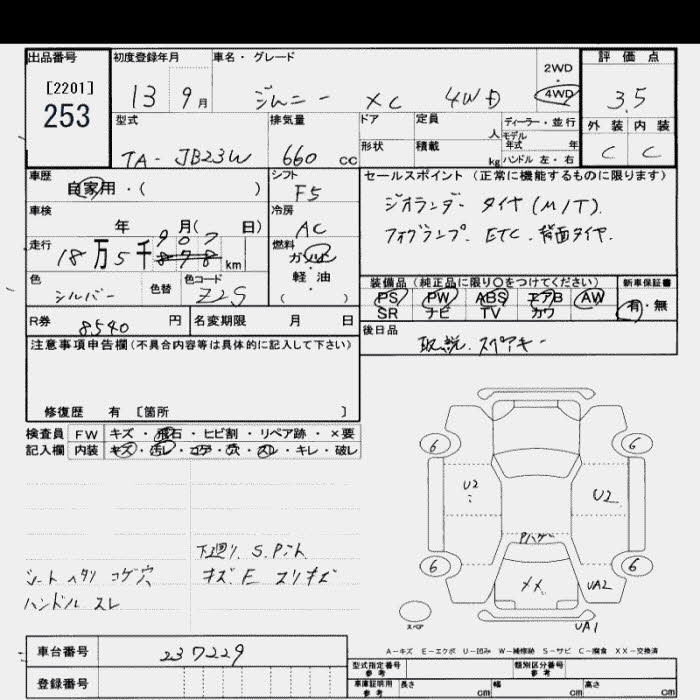 出品番号 初度登録年月 車名・グレード 評価点
[2201]
253
13 9月 ジムニー XC 4WD 2WD・4WD 3.5
型式 排気量 ドア 定員 人 ディーラー・並行 外装 内装
モデル年式 年
TA-JB23W 660cc 形状 積載 kg ハンドル 左・右 C C
車歴 シフト セールスポイント (正常に機能するものに限ります)
自家用・( ) F5
ジオランダー タイヤ(M/T).
車検 年 月( 日) 冷房 AC
フォグランプ. ETC. 背面タイヤ.
走行 18万5千907 878 km 燃料 ガソリン・軽・油 ( )
色 シルバー 色替 色コード Z2S
装備品 (純正品に限り〇をつけてください) 新車保証書
PS PW ABS エアB AW 有・無
SR ナビ TV カワ
R券 8540円 名変期限 月 日
後日品 取説. スペアキー
注意事項申告欄(不具合内容等は具体的に記入して下さい)
修復歴 有 [箇所 ]
検査員 FW キズ・飛石・ヒビ割・リペア跡・×要
記入欄 内装 キズ・汚レ・コゲ・穴・スレ・キレ・破レ
6 6
U2 U2
Pハゲ
6 6
XX UA2
スペア UA1
下廻り. S.Pント.
シート ヘタリ コゲ穴 キズ E スリキズ
ハンドル スレ
A-キズ E-エクボ U-凹み W-補修跡 S-サビ C-腐食 XX-交換済
車台番号 237229
登録番号
型式指定番号 参考 類別区分番号 参考
車庫証明用 参考 長さ cm 幅 cm 高さ cm